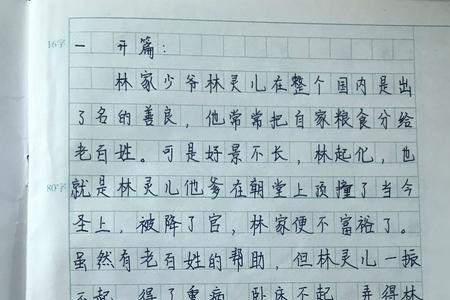 16字 一 开篇：
林家少爷林灵儿在整个国内是出
了名的善良，他常常把自家粮食分给
老百姓。可是好景不长，林起化，也
80字 就是林灵儿他爹在朝堂上顶撞了当今
圣上，被降了官，林家便不富裕了。
虽然有老百姓的帮助，但林灵儿一振
不起，得了重病，卧床不起，弄得林